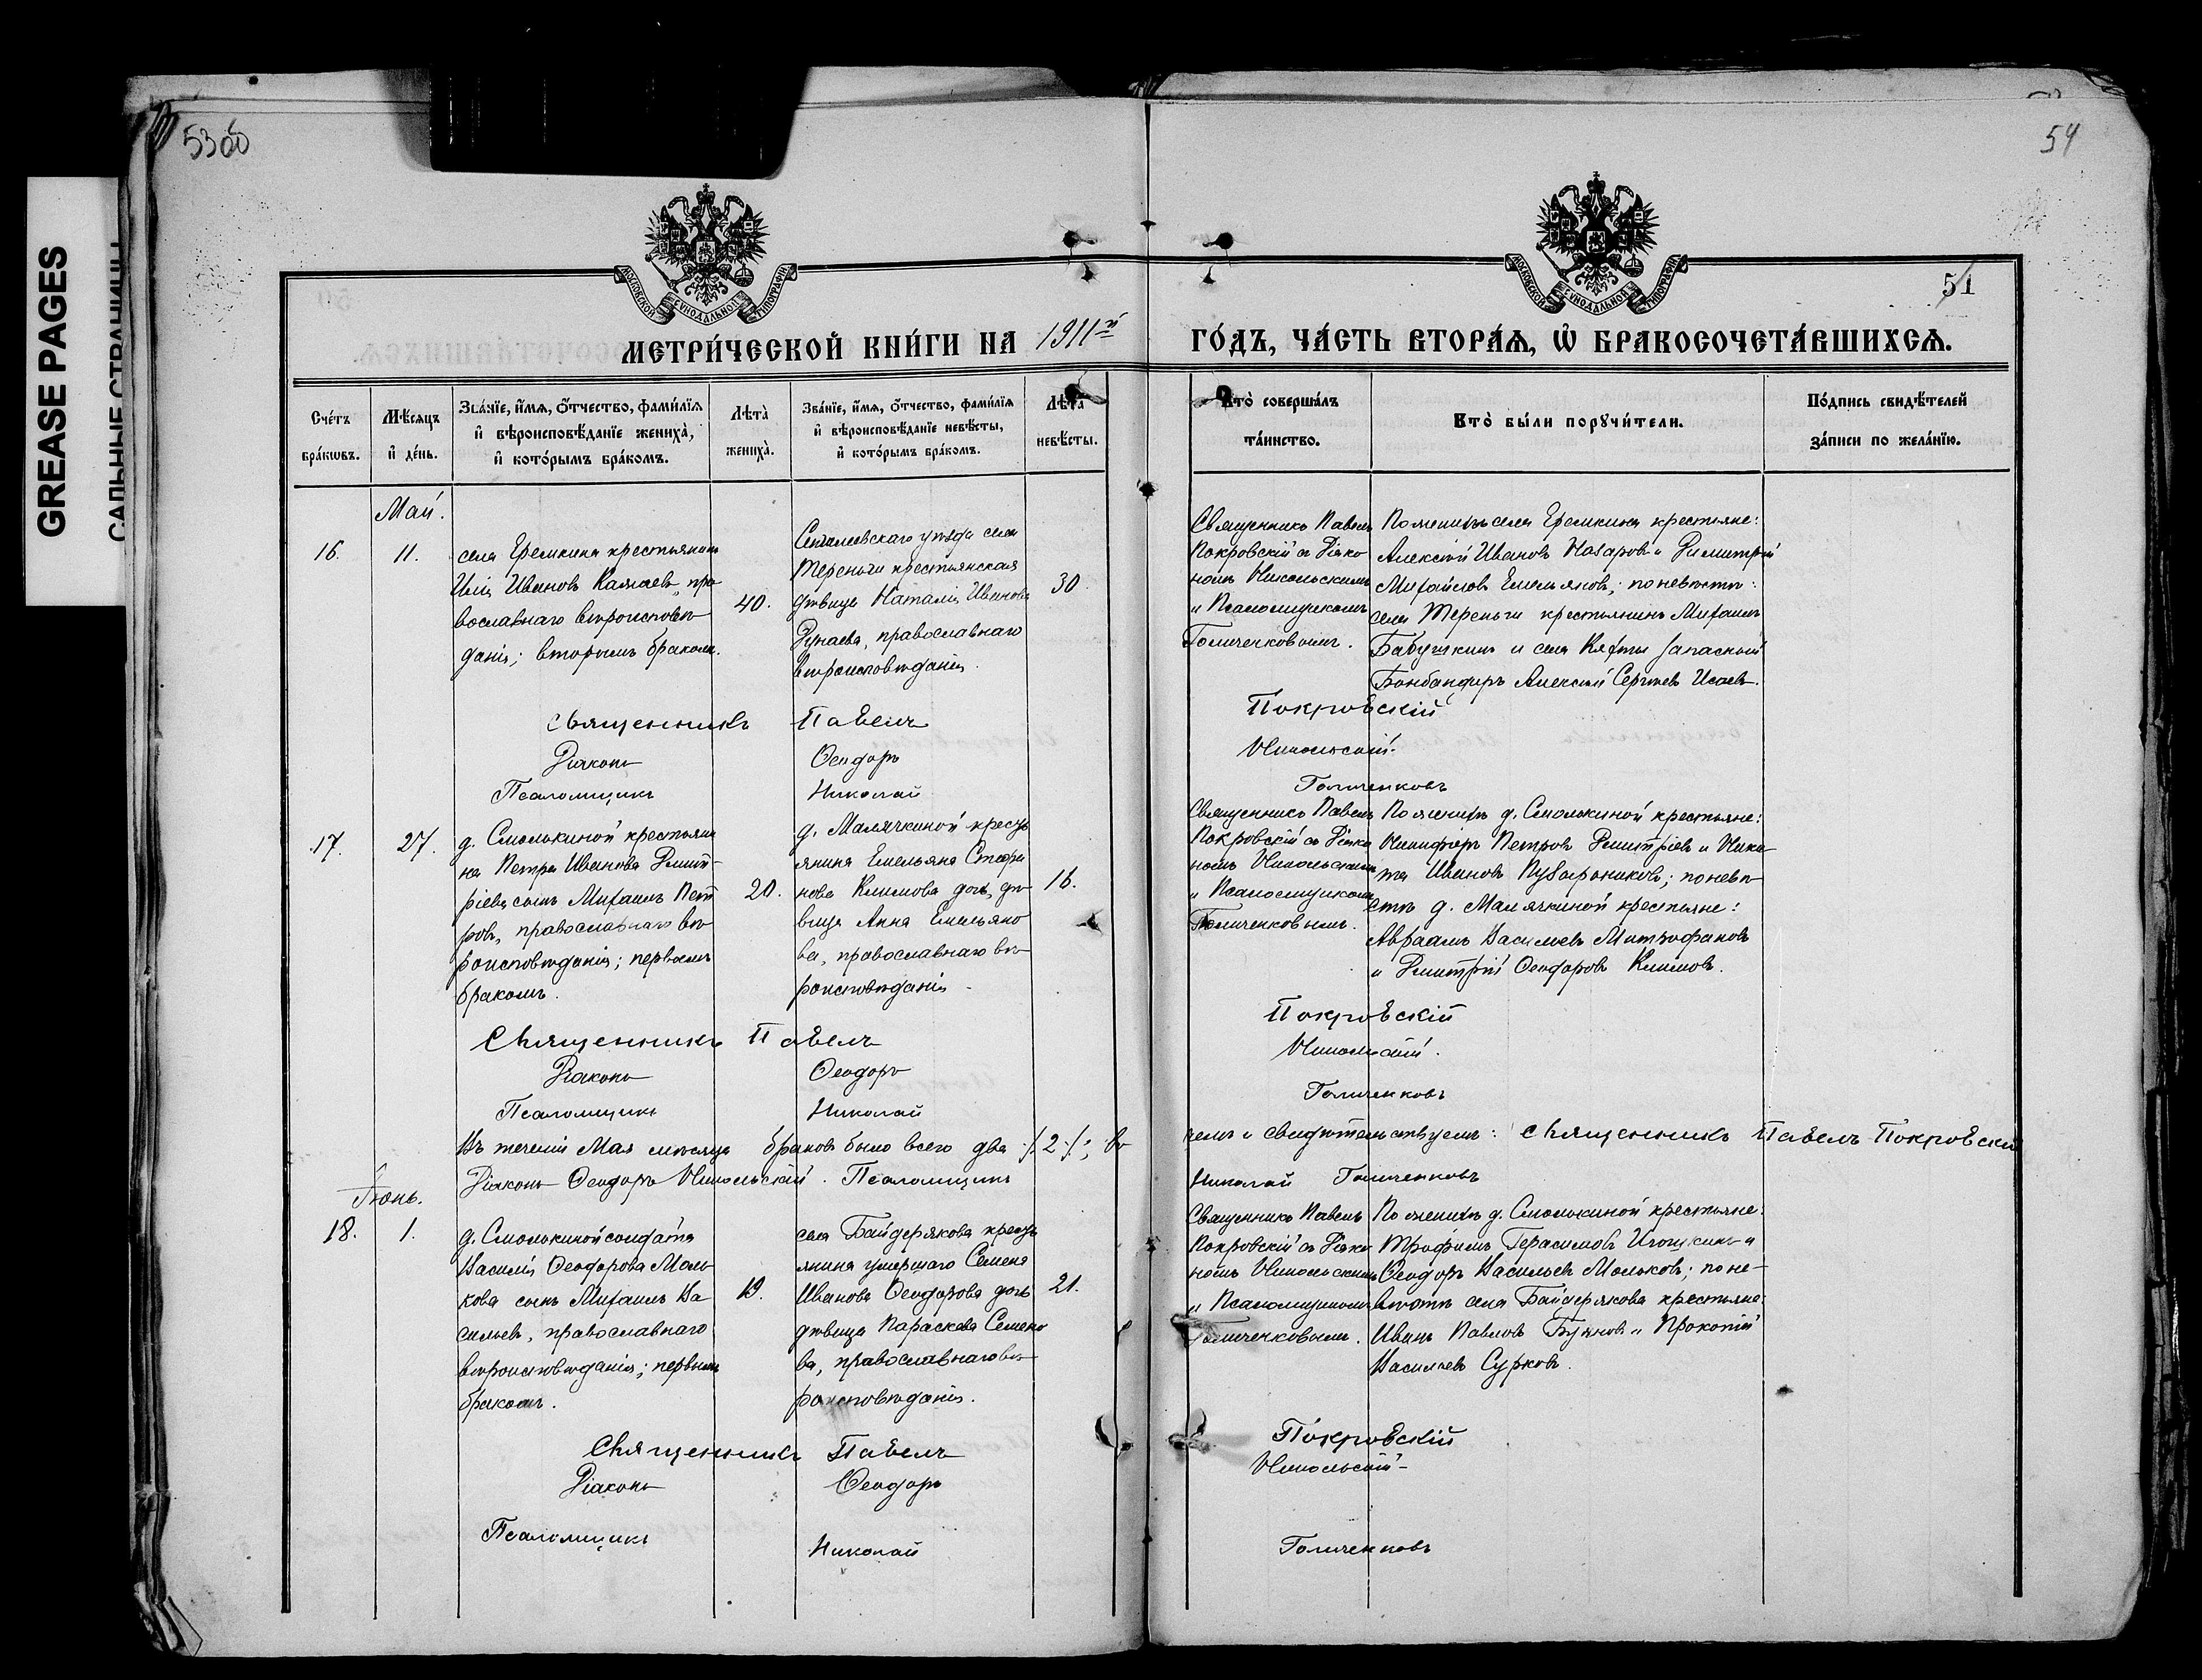 GREASE PAGES
САЛЬНЫЕ СТРАНИЦЫ
53об
54
51
МОСКОВСКОЙ СѴНОДАЛЬНОЙ ТИПОГРАФІИ
МОСКОВСКОЙ СѴНОДАЛЬНОЙ ТИПОГРАФІИ
МЕТРИ́ЧЕСКОЙ КНИ́ГИ НА 1911й ГО́ДЪ, ЧА́СТЬ ВТОРА́Я, Ѡ҆ БРАКОСОЧЕТА́ВШИХСѦ.
Сче́тъ бра́кѡвъ.
Мѣ́сѧцъ и҆ де́нь.
Зва́нїе, и҆́мѧ, ѻ҆́тчество, фами́лїѧ
и҆ вѣроисповѣ́данїе жениха̀,
и҆ кото́рымъ бра́комъ.
Лѣта̀ жениха̀.
Зва́нїе, и҆́мѧ, ѻ҆́тчество, фами́лїѧ
и҆ вѣроисповѣ́данїе невѣ́сты,
и҆ кото́рымъ бра́комъ.
Лѣта̀ невѣ́сты.
Кто̀ соверша́лъ та́инство.
Кто̀ бы́ли порꙋчи́тели.
По́дпись свидѣ́телей за́писи по жела́нїю.
Май.
16.
11.
села Еремкина крестьянинъ
Илія Ивановъ Камаевъ, пра
вославнаго вѣроисповѣ
данія; вторымъ бракомъ.
40.
Сенгилеевскаго уѣзда села
Тереньги крестьянская
дѣвица Наталія Иванова
Дунаева, православнаго
вѣроисповѣданія.
30.
Священникъ Павелъ
Покровскій съ Діако
номъ Никольскимъ
и Псаломщикомъ
Голиченковымъ.
По женихѣ села Еремкина крестьяне:
Алексѣй Ивановъ Назаровъ и Димитрій
Михайловъ Емельяновъ; по невѣстѣ:
села Тереньги крестьянинъ Михаилъ
Бабушкинъ и села Кяхты запасный
Бонбандиръ Алексѣй Сергѣевъ Исаевъ.
Священникъ Павелъ Покровскій
Діаконъ Ѳеодоръ Никольскій.
Псаломщикъ Николай Голиченковъ
17.
27.
д. Смолькиной крестьяни
на Петра Иванова Димит
ріева сынъ Михаилъ Пет
ровъ, православнаго вѣ
роисповѣданія; первымъ
бракомъ.
20.
д. Малячкиной кресть
янина Емельяна Стефа
нова Климова дочь, дѣ
вица Анна Емельяно
ва, православнаго вѣ
роисповѣданія.
16.
Священникъ Павелъ
Покровскій съ Діако
номъ Никольскимъ
и Псаломщикомъ
Голиченковымъ.
По женихѣ д. Смолькиной крестьяне:
Никифоръ Петровъ Димитріевъ и Ники
та Ивановъ; по невѣ
стѣ д. Малячкиной крестьяне:
Авраамъ Васильевъ Митрофановъ
и Димитрій Ѳеодоровъ Климовъ.
Священникъ Павелъ Покровскій
Діаконъ Ѳеодоръ Никольскій.
Псаломщикъ Николай Голиченковъ
Въ теченіи Мая мѣсяца браковъ было всего два /:2:/; въ чемъ и свидѣтельствуемъ: Священникъ Павелъ Покровскій
Діаконъ Ѳеодоръ Никольскій. Псаломщикъ Николай Голиченковъ
Іюнь.
18.
1.
д. Смолькиной солдата
Василія Ѳеодорова Моль
кова сынъ Михаилъ Ва
сильевъ, православнаго
вѣроисповѣданія; первымъ
бракомъ.
19.
села Байдерякова кресть
янина умершаго Семена
Иванова Ѳеодорова дочь
дѣвица Параскева Семено
ва, православнаго вѣ
роисповѣданія.
21.
Священникъ Павелъ
Покровскій съ Діако
номъ Никольскимъ
и Псаломщикомъ
Голиченковымъ.
По женихѣ д. Смолькиной крестьяне:
Трофимъ Герасимовъ и
Ѳеодоръ Васильевъ Мольковъ; по не
вѣстѣ села Байдерякова крестьяне:
Иванъ Павловъ Буяновъ и Прокопій
Васильевъ Сурковъ.
Священникъ Павелъ Покровскій
Діаконъ Ѳеодоръ Никольскій
Псаломщикъ Николай Голиченковъ